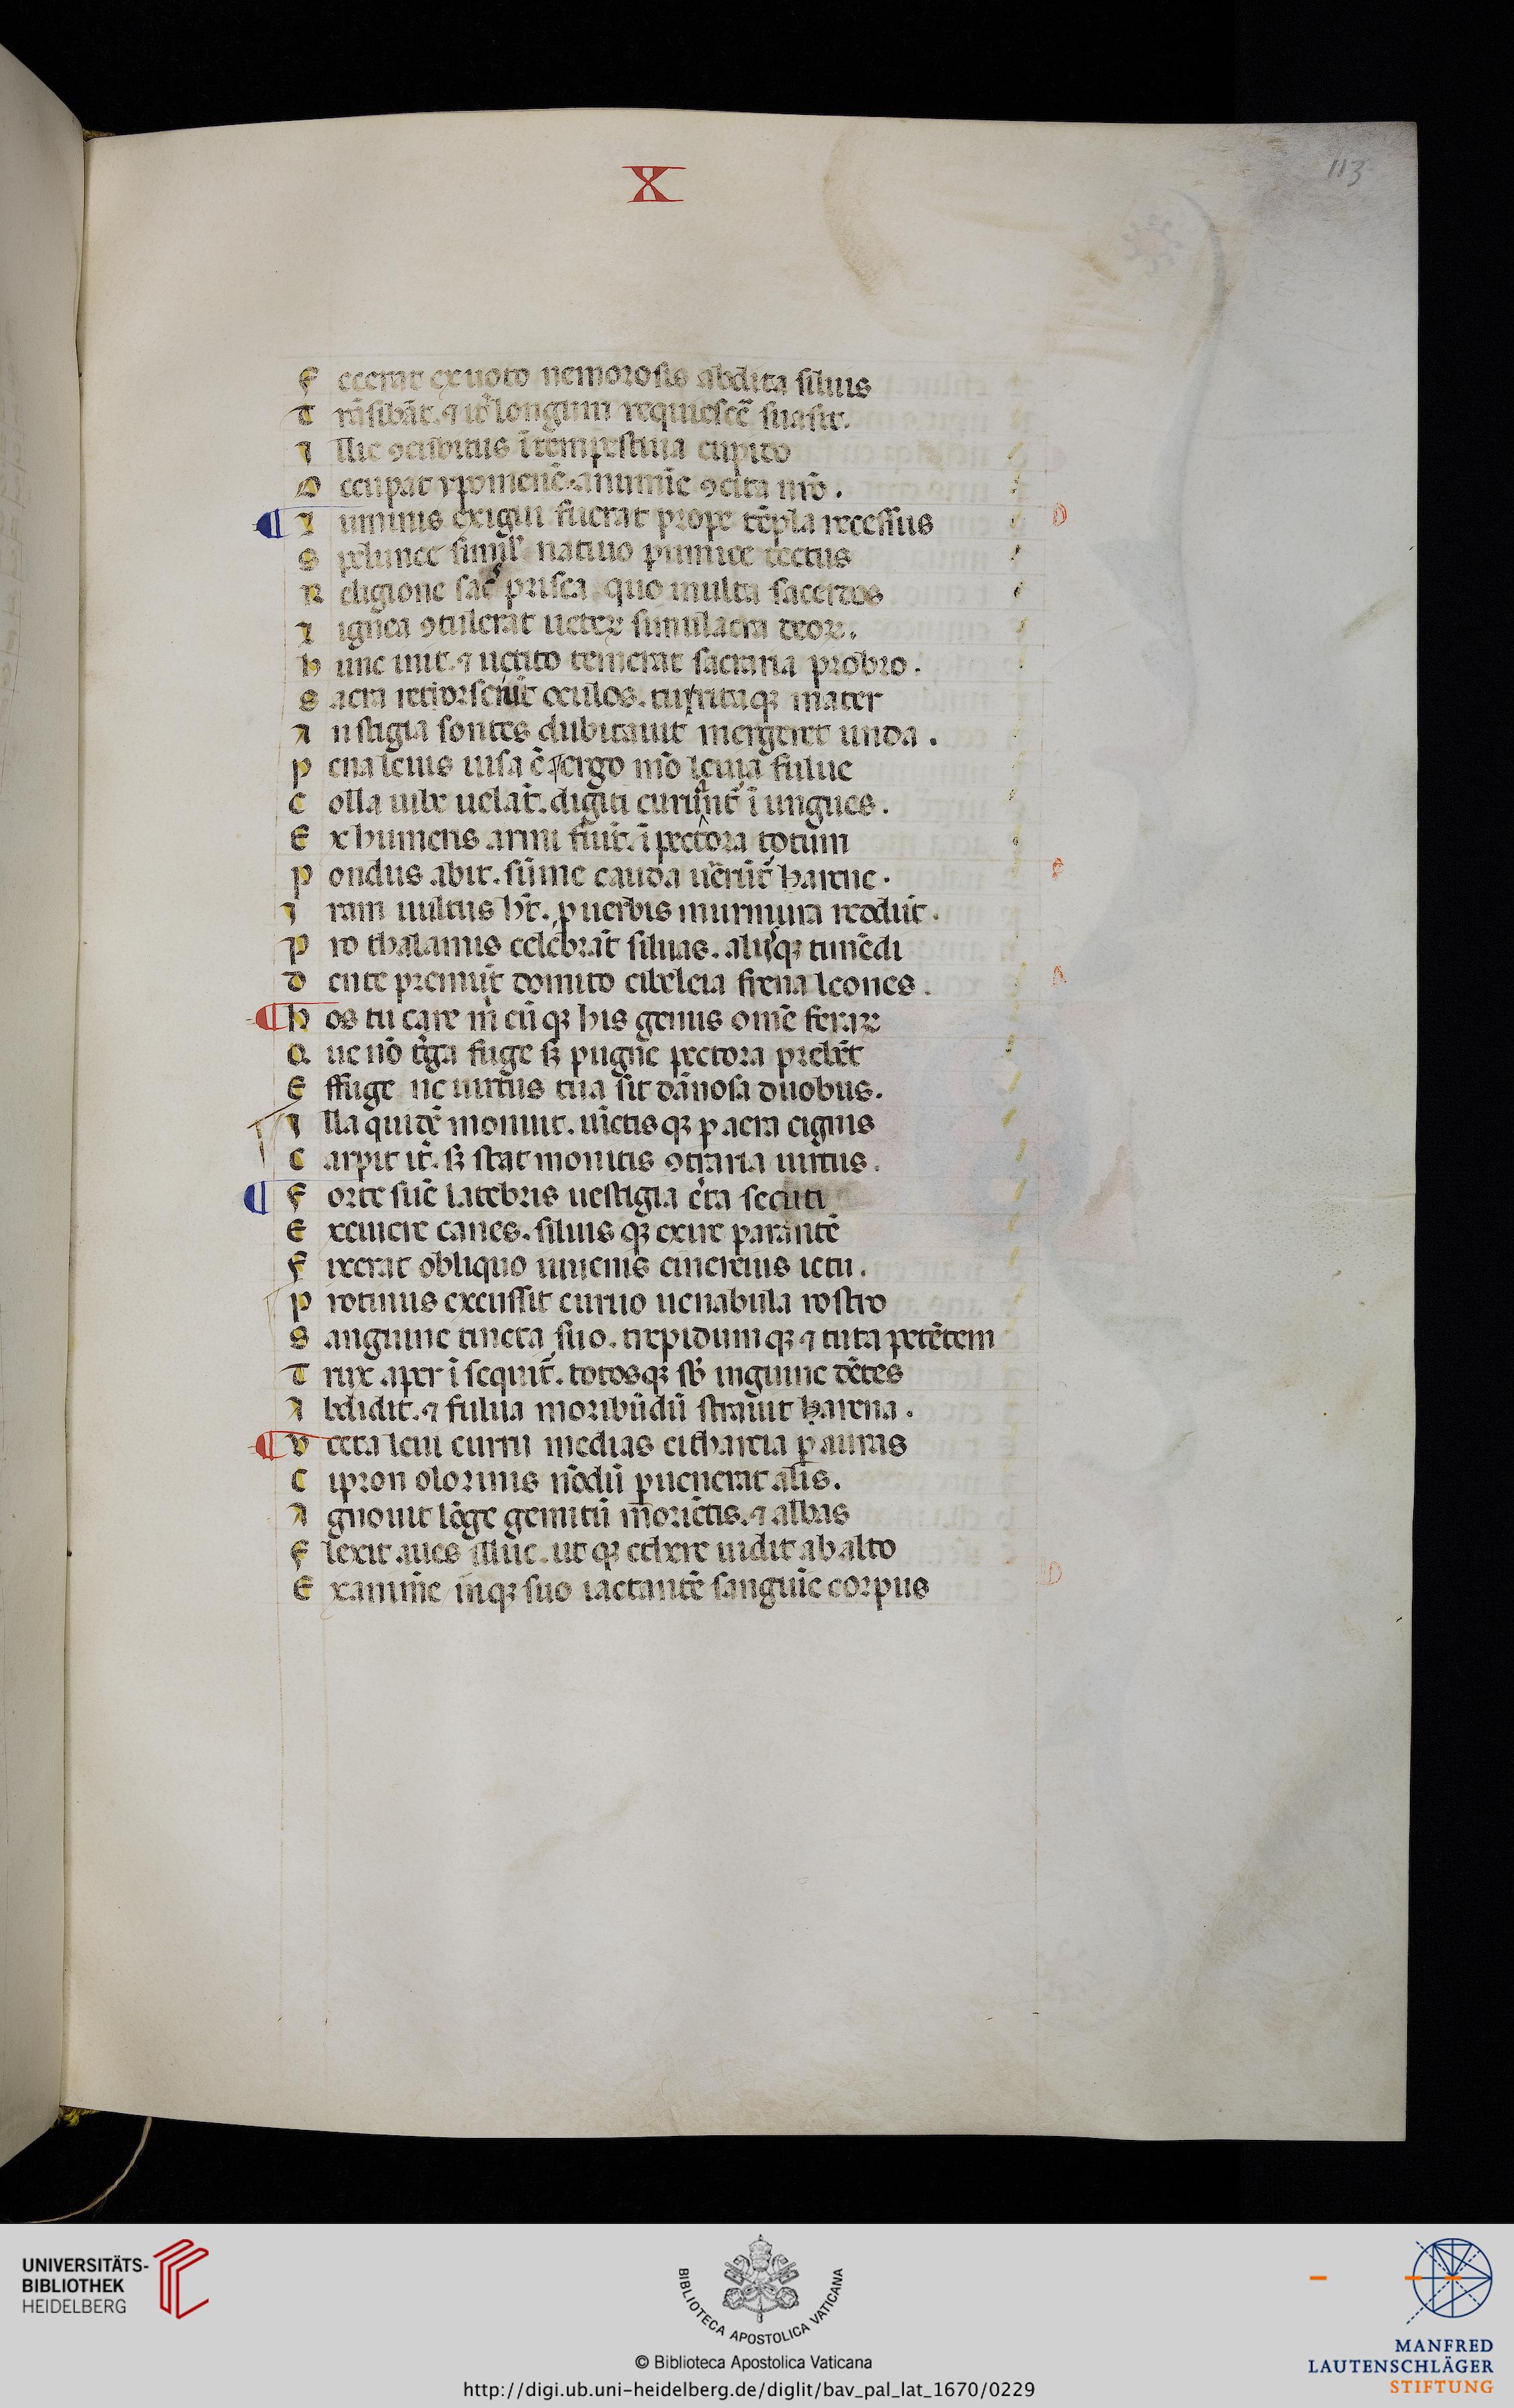 X
113
F ecerat ex uoto nemorosis abdita siluis
T rãsibãt. ⁊ it͛ longum requiescẽ suasit.
I llic ꝯcubitus ĩtempestiua cupido
O ccupat ypomenẽ. a numĩe ꝯcita nrõ.
L uminis exigui fuerat prope tẽpla recessus
S pelunce simil' natiuo pumice tectus
R eligione sac̃ prisca quo multa sacerdos
L ignea ꝯtulerat ueteꝝ simulacra deoꝝ.
h unc init. ⁊ uetito temerat sacraria probro.
S acra retorserũt oculos. turritaqꝫ mater
A n stigia sontes dubitauit mergeret unda.
P ena leuis uisa ẽ. ergo mõ leuia fulue
C olla iube uelãt. digiti curuant̃ ĩ ungues.
E x humeris armi fiũt. ĩ pectora totum
P ondus abit. sũme cauda uẽrũt̃ harene.
I ram uultus ht̃. ꝓ uerbis murmura reddũt.
P ro thalamis celebrãt siluas. aliisqꝫ timẽdi
D ente premũt domito cibeleia frena leones.
h os tu care m cũ qꝫ his genus omẽ feraꝝ
Q ue nõ tga fuge sꝫ pugne pectora prebẽt
E ffuge ne uirtus tua sit dãnosa duobus.
I lla quidẽ monuit. iũctis qꝫ ꝑ aera cignis
C arpit it̃. sꝫ stat monitis ꝯtraria uirtus.
F orte suẽ latebris uestigia cta secuti
E xciuere canes. siluis qꝫ exire parantẽ
F ixerat obliquo iuuenis cinereius ictu.
P rotinus excussit curuo uenabula rostro
S anguine tincta suo. trepidum qꝫ ⁊ tuta petẽtem
T rux aper ĩ sequit̃. totosqꝫ sb̃ inguine dẽtes
A bdidit. ⁊ fulua moribũdũ strauit harena.
V ecta leui curru medias citharea ꝑ auras
C ipron olorinis nõdũ ꝑuenerat alis.
A gnouit lõge gemitũ moriẽtis. ⁊ albas
F lexit aues illuc. ut qꝫ ethere uidit ab alto
E xanimẽ inqꝫ suo iactantẽ sanguĩe corpus
D
e
A
D
UNIVERSITÄTS-
BIBLIOTHEK
HEIDELBERG
BIBLIOTECA APOSTOLICA VATICANA
© Biblioteca Apostolica Vaticana
http://digi.ub.uni-heidelberg.de/diglit/bav_pal_lat_1670/0229
MANFRED
LAUTENSCHLÄGER
STIFTUNG